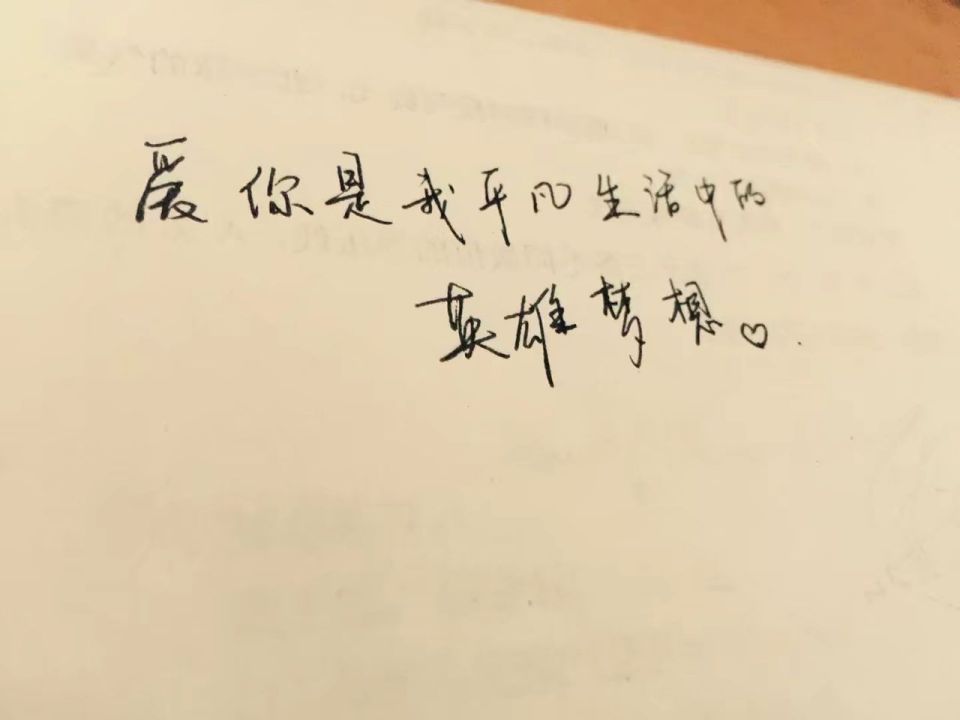 爱你是我平凡生活中的
英雄梦想♡.